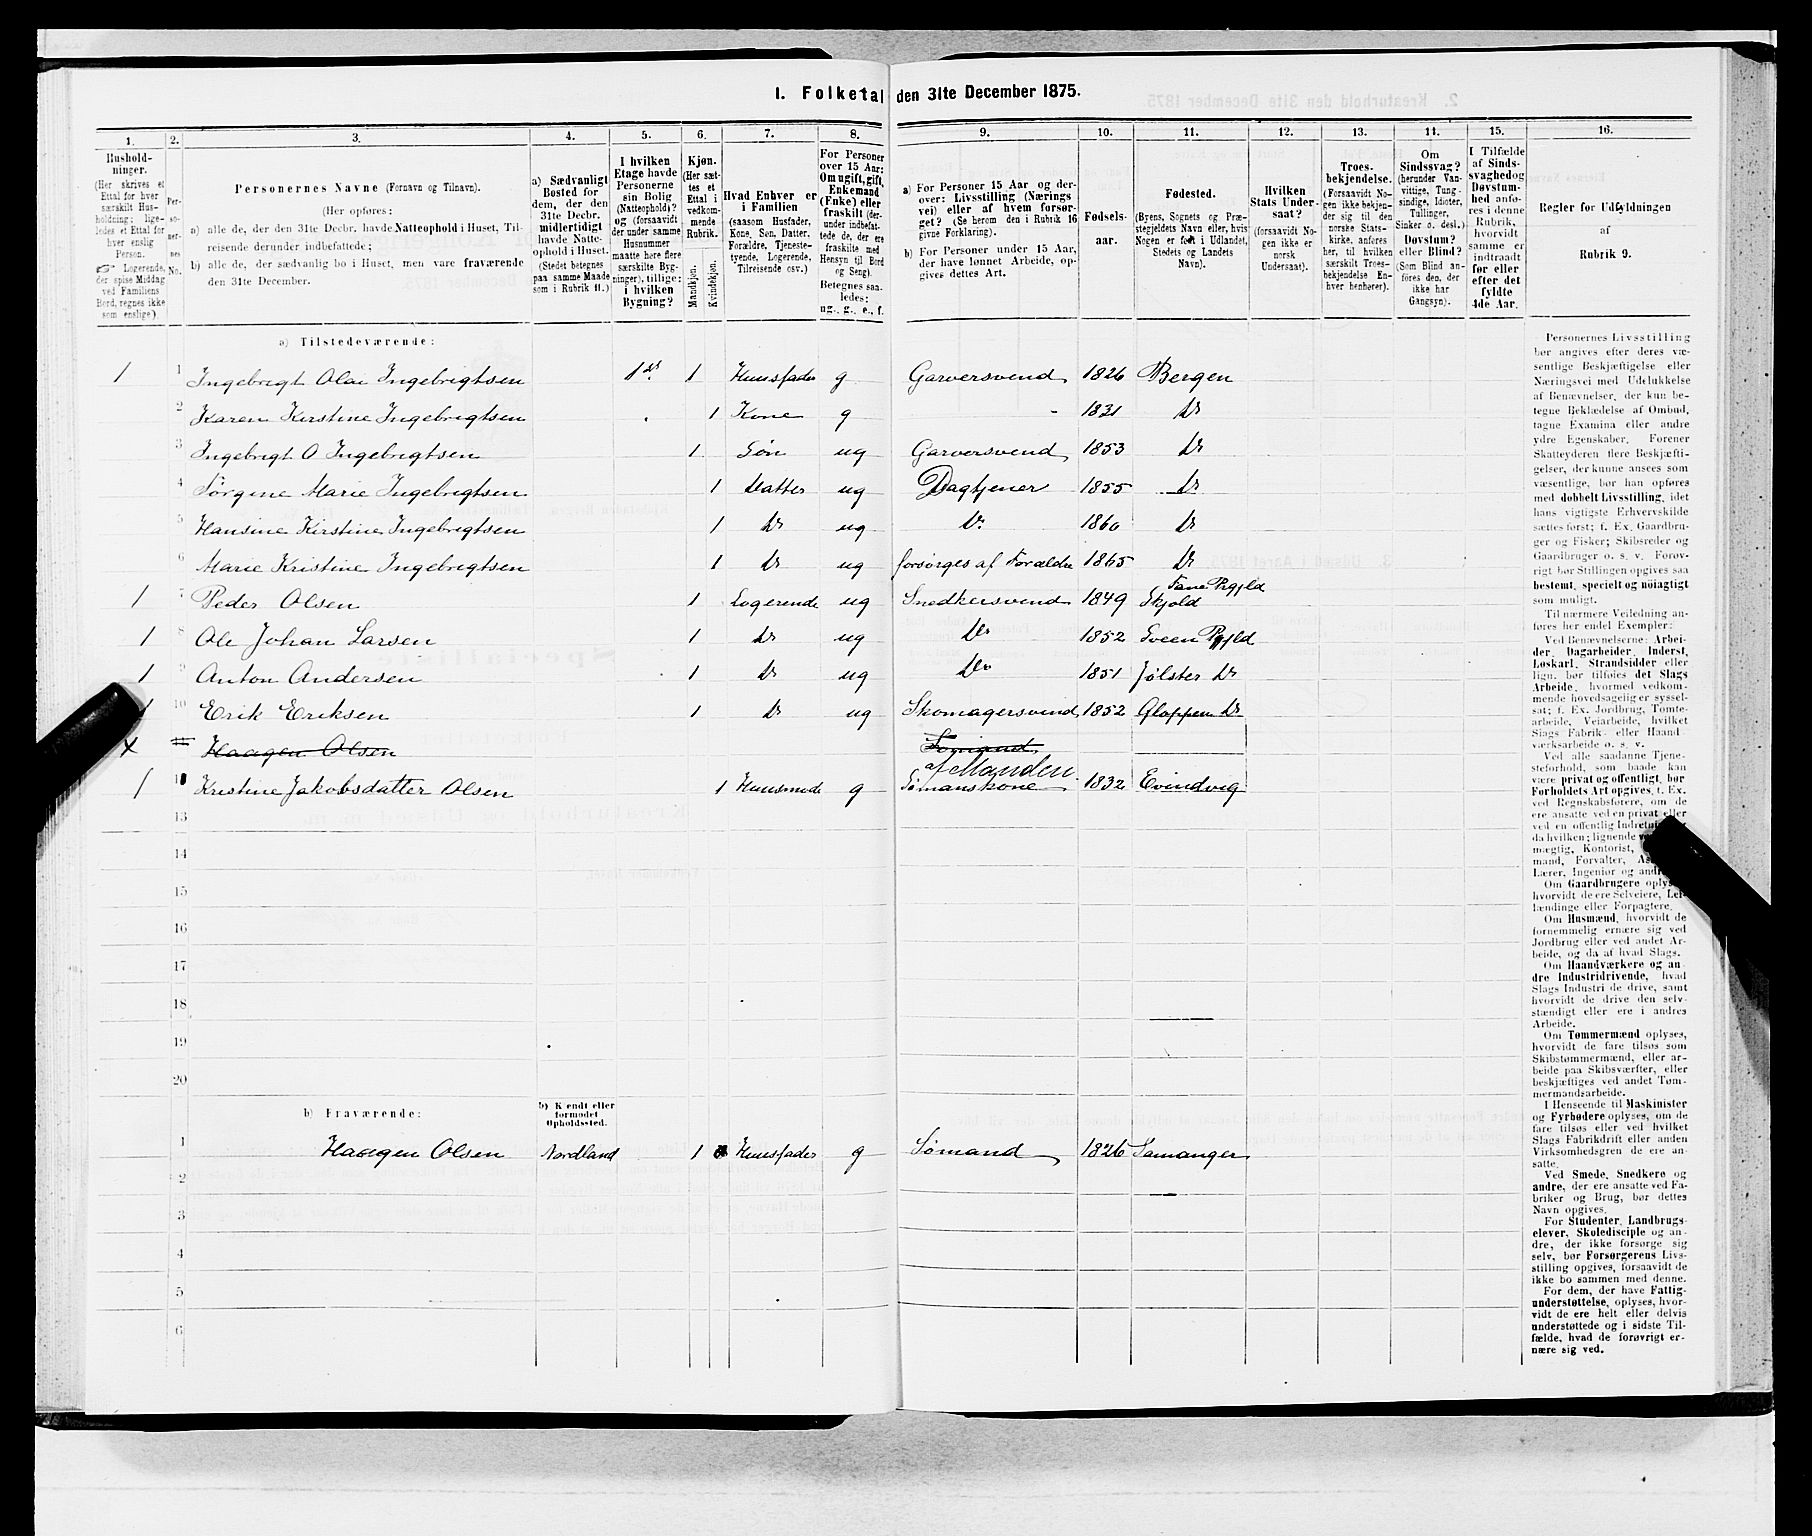 1. Folketal den 31te December 1875.
1. 2. 3. 4. 5. 6. 7. 8. 9. 10. 11. 12. 13. 14. 15. 16.
Hushold-
ninger.
(Her skrives et
Ettal for hver
særskilt Hus-
holdning; lige-
ledes et Ettal for
hver enslig
Person.
☞ Logerende,
der spise Middag
ved Familiens
Bord, regnes ikke
som enslige).
Per-
so-
ner-
nes
No.
Personernes Navne (Fornavn og Tilnavn).
(Her opføres:
a) alle de, der den 31te Decbr. havde Natteophold i Huset, Til-
reisende derunder indbefattede;
b) alle de, der sædvanlig bo i Huset, men vare fraværende
den 31te December.
a) Sædvanligt
Bosted for
dem, der den
31te Decbr.
midlertidigt
havde Natte-
ophold i Huset.
(Stedet betegnes
paa samme Maade
som i Rubrik 11.)
I hvilken
Etage havde
Personerne
sin Bolig
(Natteophold)?
og (forsaavidt
der under samme
Husnummer
maatte høre flere
særskilte Byg-
ninger), tillige:
i hvilken
Bygning?
Kjøn.
(Her sæt-
tes et
Ettal i
vedkom-
mende
Rubrik.
Mandkjøn.
Kvindekjøn.
Hvad Enhver er
i Familien
(saasom Husfader,
Kone, Søn, Datter,
Forældre, Tjeneste-
tyende, Logerende,
Tilreisende osv.)
For Personer
over 15 Aar:
Om ugift, gift,
Enkemand
(Enke) eller
fraskilt (der-
under indbefat-
tede de, der ere
fraskilte med
Hensyn til Bord
og Seng).
Betegnes saa-
ledes:
ug., g., e., f.
a) For Personer 15 Aar og der-
over: Livsstilling (Nærings-
vei) eller af hvem forsør-
get? (Se herom den i Rubrik 16
givne Forklaring).
b) For Personer under 15 Aar,
der have lønnet Arbeide, op-
gives dettes Art.
Fødsels-
aar.
Fødested.
(Byens, Sognets og Præ-
stegjeldets Navn eller, hvis
Nogen er født i Udlandet,
Stedets og Landets
Navn).
Hvilken
Stats Under-
saat?
(forsaavidt No-
gen ikke er
norsk
Undersaat).
Troes-
bekjendelse.
(Forsaavidt No-
gen ikke bekjen-
der sig til den
norske Stats-
kirke, anføres
her, til hvilken
særskilt Troes-
bekjendelse En-
hver henhører).
Om
Sindssvag?
(herunder Van-
vittige, Tung-
sindige, Idioter,
Tullinger,
Sinker o. desl.)
Døvstum?
eller Blind?
(Som Blind an-
føres den, der
ikke har
Gangsyn).
I Tilfælde
af Sinds-
svaghed og
Døvstum-
hed anfø-
res i denne
Rubrik,
hvorvidt
samme er
indtraadt
før eller
efter det
fyldte
4de Aar.
Regler for Udfyldningen
af
Rubrik 9.
a) Tilstedeværende:
1 1 Ingebrigt Olai Ingebrigtsen 1 St. 1 Huusfader g Garversvend 1826 Bergen
2 Karen Kirstine Ingebrigtsen 1 Kone g - 1831 Do
3 Ingebrigt O Ingebrigtsen 1 Søn ug Garversvend 1853 Do
4 Jørgine Marie Ingebrigtsen 1 Datter ug Dagtjener 1855 Do
5 Hansine Kirstine Ingebrigtsen 1 Do ug Do 1860 Do
6 Marie Kristine Ingebrigtsen 1 Do ug forsørges af Forældre 1865 Do
1 7 Peder Olsen 1 Logerende ug Snedkersvend 1849 Skjold Fane Prgjld
1 8 Ole Johan Larsen 1 Do ug Do 1852 Sveen Prgjld
1 9 Anton Andersen 1 Do ug Do 1851 Jølster Do
1 10 Erik Eriksen 1 Do ug Skomagersvend 1852 Gloppen Do
x Haagen Olsen Sømand
af Manden
1 Kristine Jakobsdatter Olsen 1 Huusmode g Sømanskone 1832 Evindvig
13
14
15
16
17
18
19
20
b) Fraværende:
b) Kendt eller
formodet
Opholdssted.
1 Haagen Olsen Nordland 1 Huusfader g Sømand 1826 Samanger
2
3
4
5
6
Personernes Livsstilling
bør angives efter deres væ-
sentlige Beskjæftigelse eller
Næringsvei med Udelukkelse
af Benævnelser, der kun be-
tegne Beklædelse af Ombud,
tagne Examina eller andre
ydre Egenskaber. Forener
Skatteyderen flere Beskjæfti-
gelser, der kunne ansees som
væsentlige, bør han opføres
med dobbelt Livsstilling, idet
hans vigtigste Erhvervskilde
sættes først; f. Ex. Gaardbru-
ger og Fisker; Skibsreder og
Gaardbruger o. s. v. Forøv-
rigt bør Stillingen opgives saa
bestemt, specielt og nöiagtigt
som muligt.
Til nærmere Veiledning an-
føres her endel Exempler:
Ved Benævnelserne: Arbei-
der, Dagarbeider, Inderst,
Løskarl, Strandsidder eller
lign. bør tilføies det Slags
Arbeide, hvormed vedkom-
mende hovedsagelig er syssel-
sat; f. Ex. Jordbrug, Tømte-
arbeide, Veiarbeide, hvilket
Slags Fabrik- eller Haand-
værksarbeide o. s. v.
Ved alle saadanne Tjene-
steforhold, som baade kan
være privat og offentligt, bør
Forholdets Art opgives, f. Ex.
ved Regnskabsførere, om de
ere ansatte ved en privat eller
ved en offentlig Indretning og
da hvilken; lignende
mægtig, Kontorist,
mand, Forvalter,
Lærer, Ingeniør og andre.
Om Gaardbrugere oplyses,
hvorvidt de ere Selveiere, Lei-
lændinge eller Forpagtere.
Om Husmænd, hvorvidt de
fornemmelig ernære sig ved
Jordbrug eller ved andet Ar-
beide, og da af hvad Slags.
Om Haandværkere og an-
dre Industridrivende, hvad
Slags Industri de drive, samt
hvorvidt de drive den selv-
stændigt eller ere i andres
Arbeide.
Om Tømmermænd oplyses,
hvorvidt de fare tilsøs som
Skibstømmermænd, eller ar-
beide paa Skibsværfter, eller
beskjæftiges ved andet Tøm-
mermandsarbeide.
I Henseende til Maskinister
og Fyrbødere oplyses, om de
fare tilsøs eller ved hvilket
Slags Fabrikdrift eller anden
Virksomhedsgren de ere an-
satte.
Ved Smede, Snedkere og
andre, der ere ansatte ved Fa-
briker og Brug, bør dettes
Navn opgives.
For Studenter, Landbrugs-
elever, Skoledisciple og an-
dre, der ikke forsørge sig
selv, bør Forsørgerens Livs-
stilling opgives, forsaavidt de
ikke bo sammen med denne.
For dem, der have Fattig-
understøttelse, oplyses, hvor-
vidt de ere helt eller delvis
understøttede og i sidste Til-
fælde, hvad de forøvrigt er-
nære sig ved.